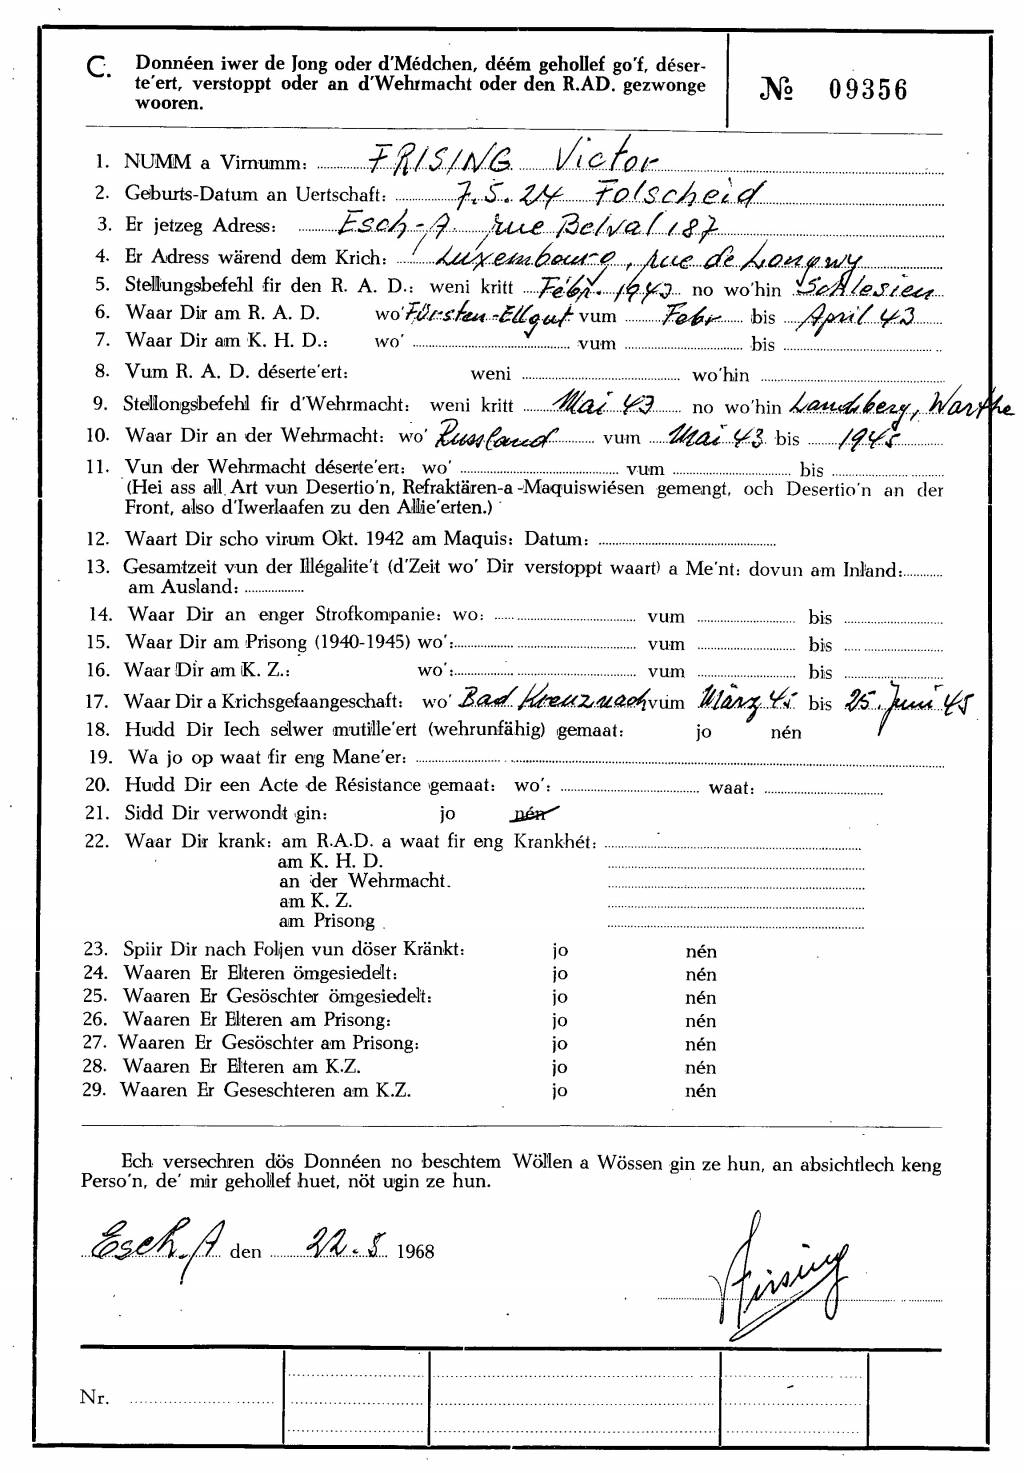 C. Donnéen iwer de Jong oder d'Médchen, déém gehollef go'f, déser-
te'ert, verstoppt oder an d'Wehrmacht oder den R.AD. gezwonge
wooren.
№ 09356
1. NUMM a Virnumm: FRISING Victor
2. Geburts-Datum an Uertschaft: 7.5.24 Folscheid
3. Er jetzeg Adress: Esch-A. rue Belval 187
4. Er Adress wärend dem Krich: Luxembourg, rue de Longwy
5. Stellungsbefehl fir den R. A. D.: weni kritt Febr. 1943 no wo'hin Schlesien
6. Waar Dir am R. A. D. wo' Fürsten-Ellgut vum Febr bis April 43
7. Waar Dir am K. H. D.: wo' vum bis
8. Vum R. A. D. déserte'ert: weni wo'hin
9. Stellongsbefehl fir d'Wehrmacht: weni kritt Mai 43 no wo'hin Landsberg, Warthe
10. Waar Dir an der Wehrmacht: wo' Russland vum Mai 43 bis 1945
11. Vun der Wehrmacht déserte'ert: wo' vum bis
(Hei ass all Art vun Desertio'n, Refraktären-a-Maquiswiésen gemengt, och Desertio'n an der
Front, also d'Iwerlaafen zu den Allie'erten.)
12. Waart Dir scho virum Okt. 1942 am Maquis: Datum:
13. Gesamtzeit vun der Illégalite't (d'Zeit wo' Dir verstoppt waart) a Me'nt: dovun am Inland:
am Ausland:
14. Waar Dir an enger Strofkompanie: wo: vum bis
15. Waar Dir am Prisong (1940-1945) wo': vum bis
16. Waar Dir am K. Z.: wo': vum bis
17. Waar Dir a Krichsgefaangeschaft: wo' Bad Kreuznach vum März 45 bis 25. Juni 45
18. Hudd Dir Iech selwer mutille'ert (wehrunfähig) gemaat: jo nén
19. Wa jo op waat fir eng Mane'er:
20. Hudd Dir een Acte de Résistance gemaat: wo': waat:
21. Sidd Dir verwondt gin: jo nén
22. Waar Dir krank: am R.A.D. a waat fir eng Krankhét:
am K. H. D.
an der Wehrmacht.
am K. Z.
am Prisong
23. Spiir Dir nach Foljen vun döser Kränkt: jo nén
24. Waaren Er Elteren ömgesiedelt: jo nén
25. Waaren Er Gesöschter ömgesiedelt: jo nén
26. Waaren Er Elteren am Prisong: jo nén
27. Waaren Er Gesöschter am Prisong: jo nén
28. Waaren Er Elteren am K.Z. jo nén
29. Waaren Er Geseschteren am K.Z. jo nén
Ech versechren dös Donnéen no beschtem Wöllen a Wössen gin ze hun, an absichtlech keng
Perso'n, de' mir gehollef huet, nöt ugin ze hun.
Esch-A den 22.5 1968
Frising
Nr.